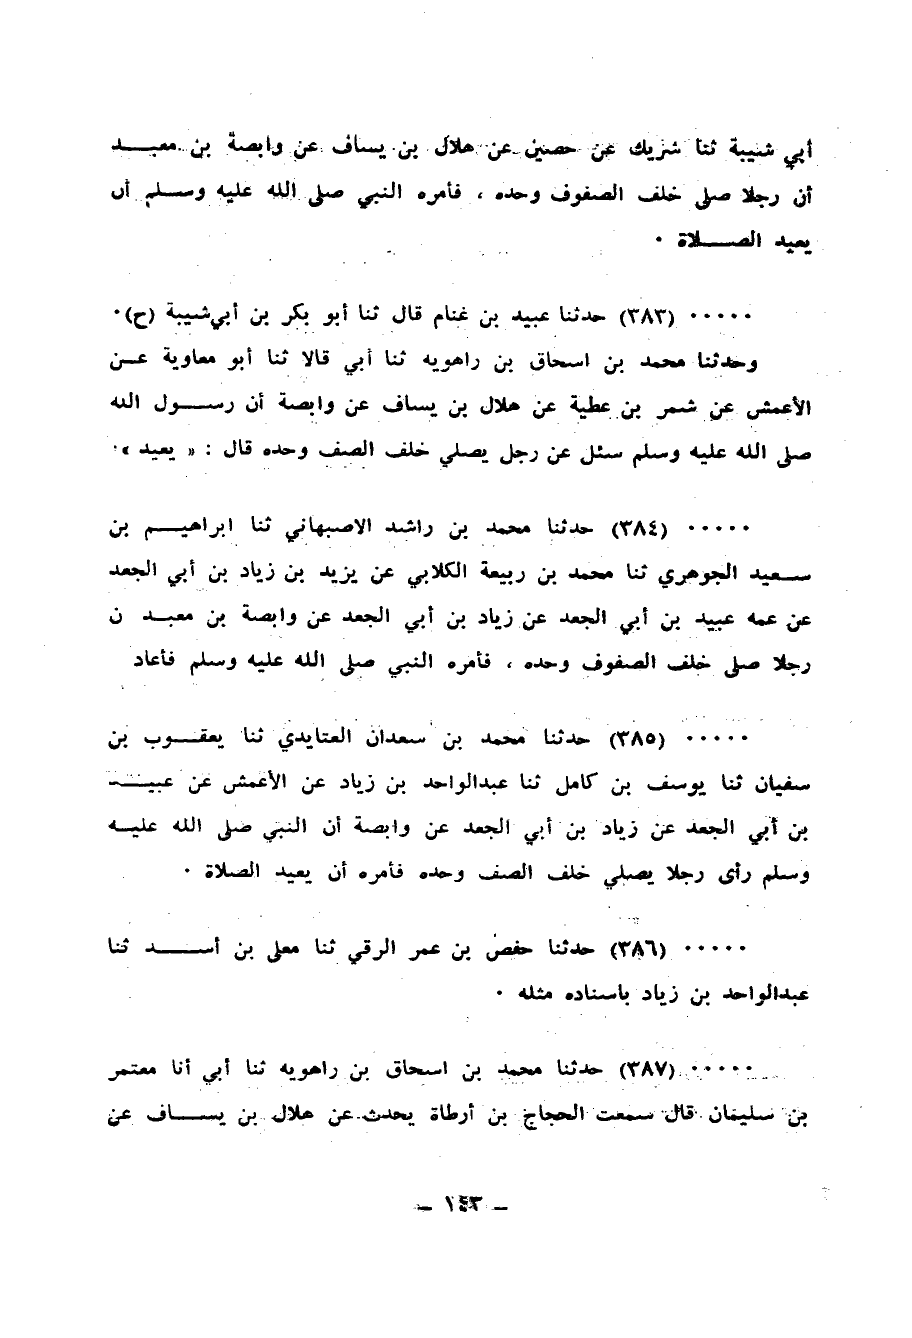 أبي شيبة ثنا شريك عن حصين عن هلال بن يساف عن وابصة بن معبد
أن رجلا صلى خلف الصفوف وحده ، فأمره النبي صلى الله عليه وسلم أن
يعيد الصلاة ٠
٠٠٠٠٠ (٣٨٣) حدثنا عبيد بن غنام قال ثنا أبو بكر بن أبي شيبة (ح)٠
وحدثنا محمد بن اسحاق بن راهويه ثنا أبي قالا ثنا أبو معاوية عن
الأعمش عن شمر بن عطية عن هلال بن يساف عن وابصة أن رسول الله
صلى الله عليه وسلم سئل عن رجل يصلي خلف الصف وحده قال : « يعيد »٠
٠٠٠٠٠ (٣٨٤) حدثنا محمد بن راشد الاصبهاني ثنا ابراهيم بن
سعيد الجوهري ثنا محمد بن ربيعة الكلابي عن يزيد بن زياد بن أبي الجعد
عن عمه عبيد بن أبي الجعد عن زياد بن أبي الجعد عن وابصة بن معبد ن
رجلا صلى خلف الصفوف وحده ، فأمره النبي صلى الله عليه وسلم فأعاد
٠٠٠٠٠ (٣٨٥) حدثنا محمد بن سعدان العتايدي ثنا يعقوب بن
سفيان ثنا يوسف بن كامل ثنا عبدالواحد بن زياد عن الأعمش عن عبيـ
بن أبي الجعد عن زياد بن أبي الجعد عن وابصة أن النبي صلى الله عليه
وسلم رأى رجلا يصلي خلف الصف وحده فأمره أن يعيد الصلاة ٠
٠٠٠٠٠ (٣٨٦) حدثنا حفص بن عمر الرقي ثنا معلى بن أسد ثنا
عبدالواحد بن زياد باسناده مثله ٠
٠٠٠٠٠ (٣٨٧) حدثنا محمد بن اسحاق بن راهويه ثنا أبي أنا معتمر
بن سليمان قال سمعت الحجاج بن أرطاة يحدث عن هلال بن يساف عن
– ١٤٣ –